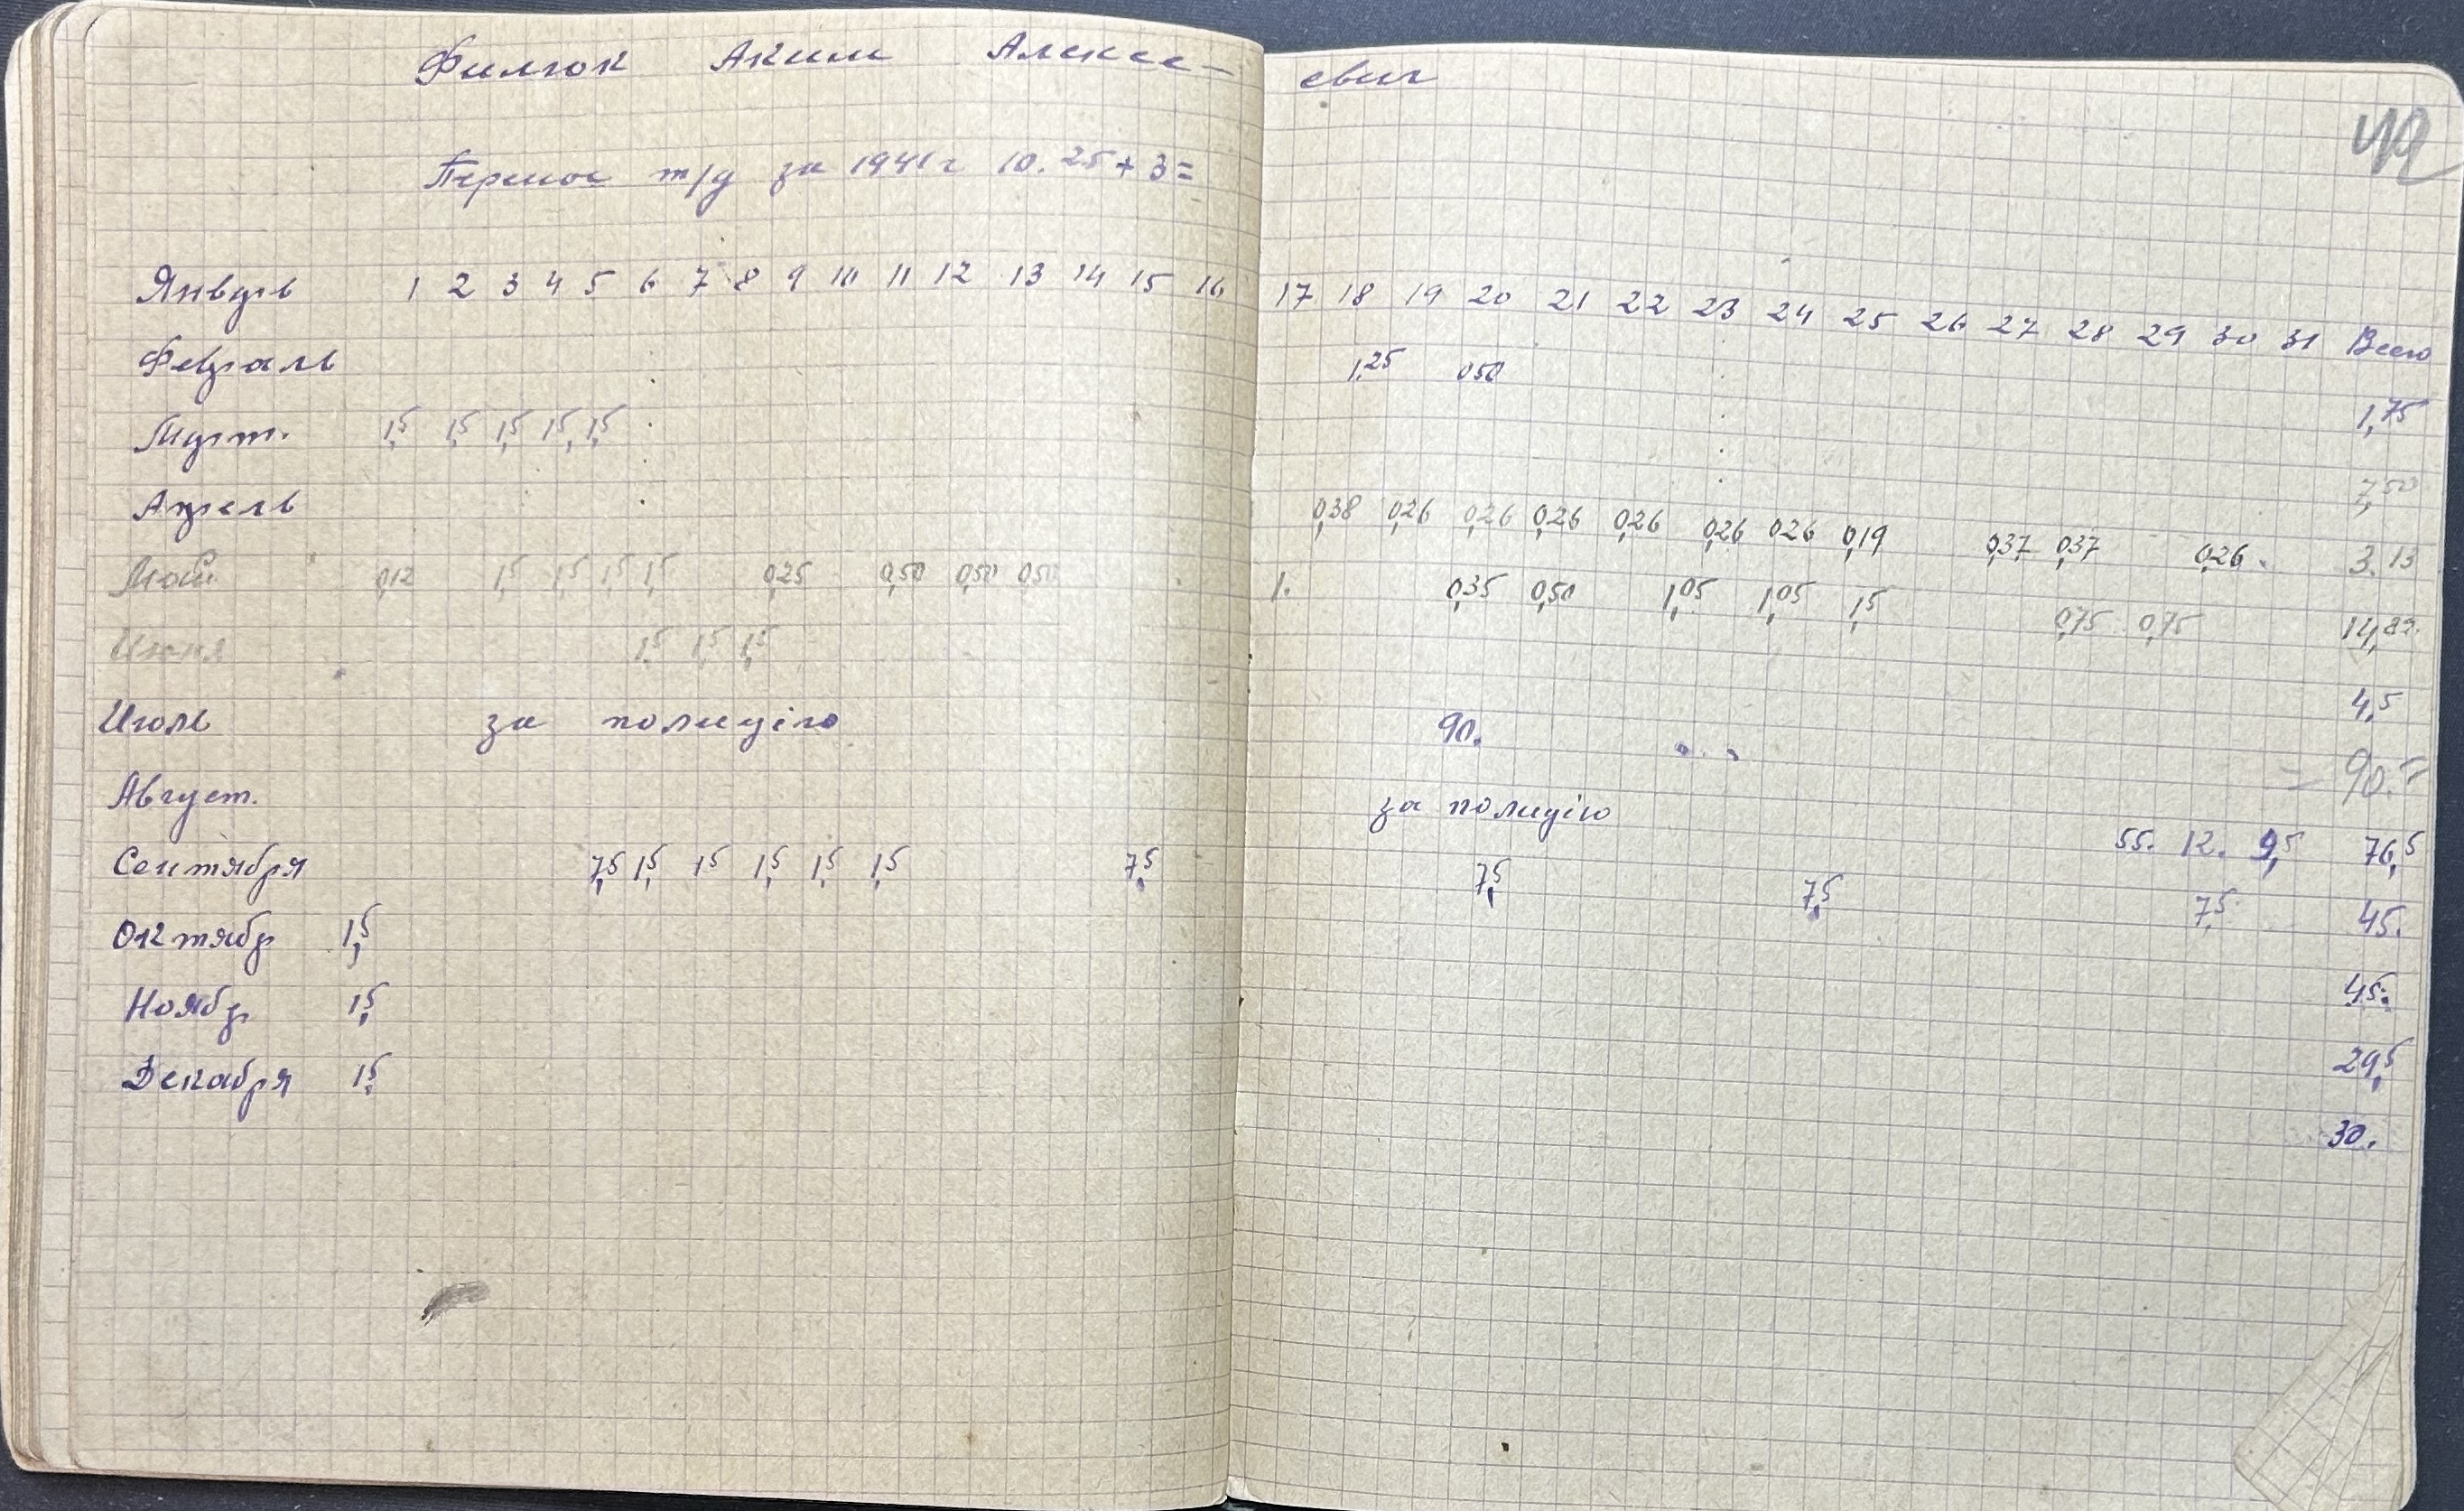 Филюк Аким Алексе-евич
42
Перенос т/д за 1941 г 10.25 + 3 =
Январь 1 2 3 4 5 6 7 8 9 10 11 12 13 14 15 16 17 18 19 20 21 22 23 24 25 26 27 28 29 30 31 Всего
Февраль 1,25 0,50 1,75
Март. 1,5 1,5 1,5 1,5 1,5 7,50
Апрель 0,38 0,26 0,26 0,26 0,26 0,26 0,26 0,19 0,37 0,37 0,26. 3.13
Май 0,12 1,5 1,5 1,5 1,5 0,25 0,50 0,50 0,50 1. 0,35 0,50 1,05 1,05 1,5 0,75 0,75 14,82.
Июня 1,5 1,5 1,5 4,5
Июль за полицію 90. = 90. =
Август. за полицію 55. 12. 9,5 76,5
Сентября 7,5 1,5 1,5 1,5 1,5 1,5 7,5 7,5 7,5 7,5 45.
Октябр 1,5 45.
Ноябр 1,5 29,5
Декабря 1,5 30.